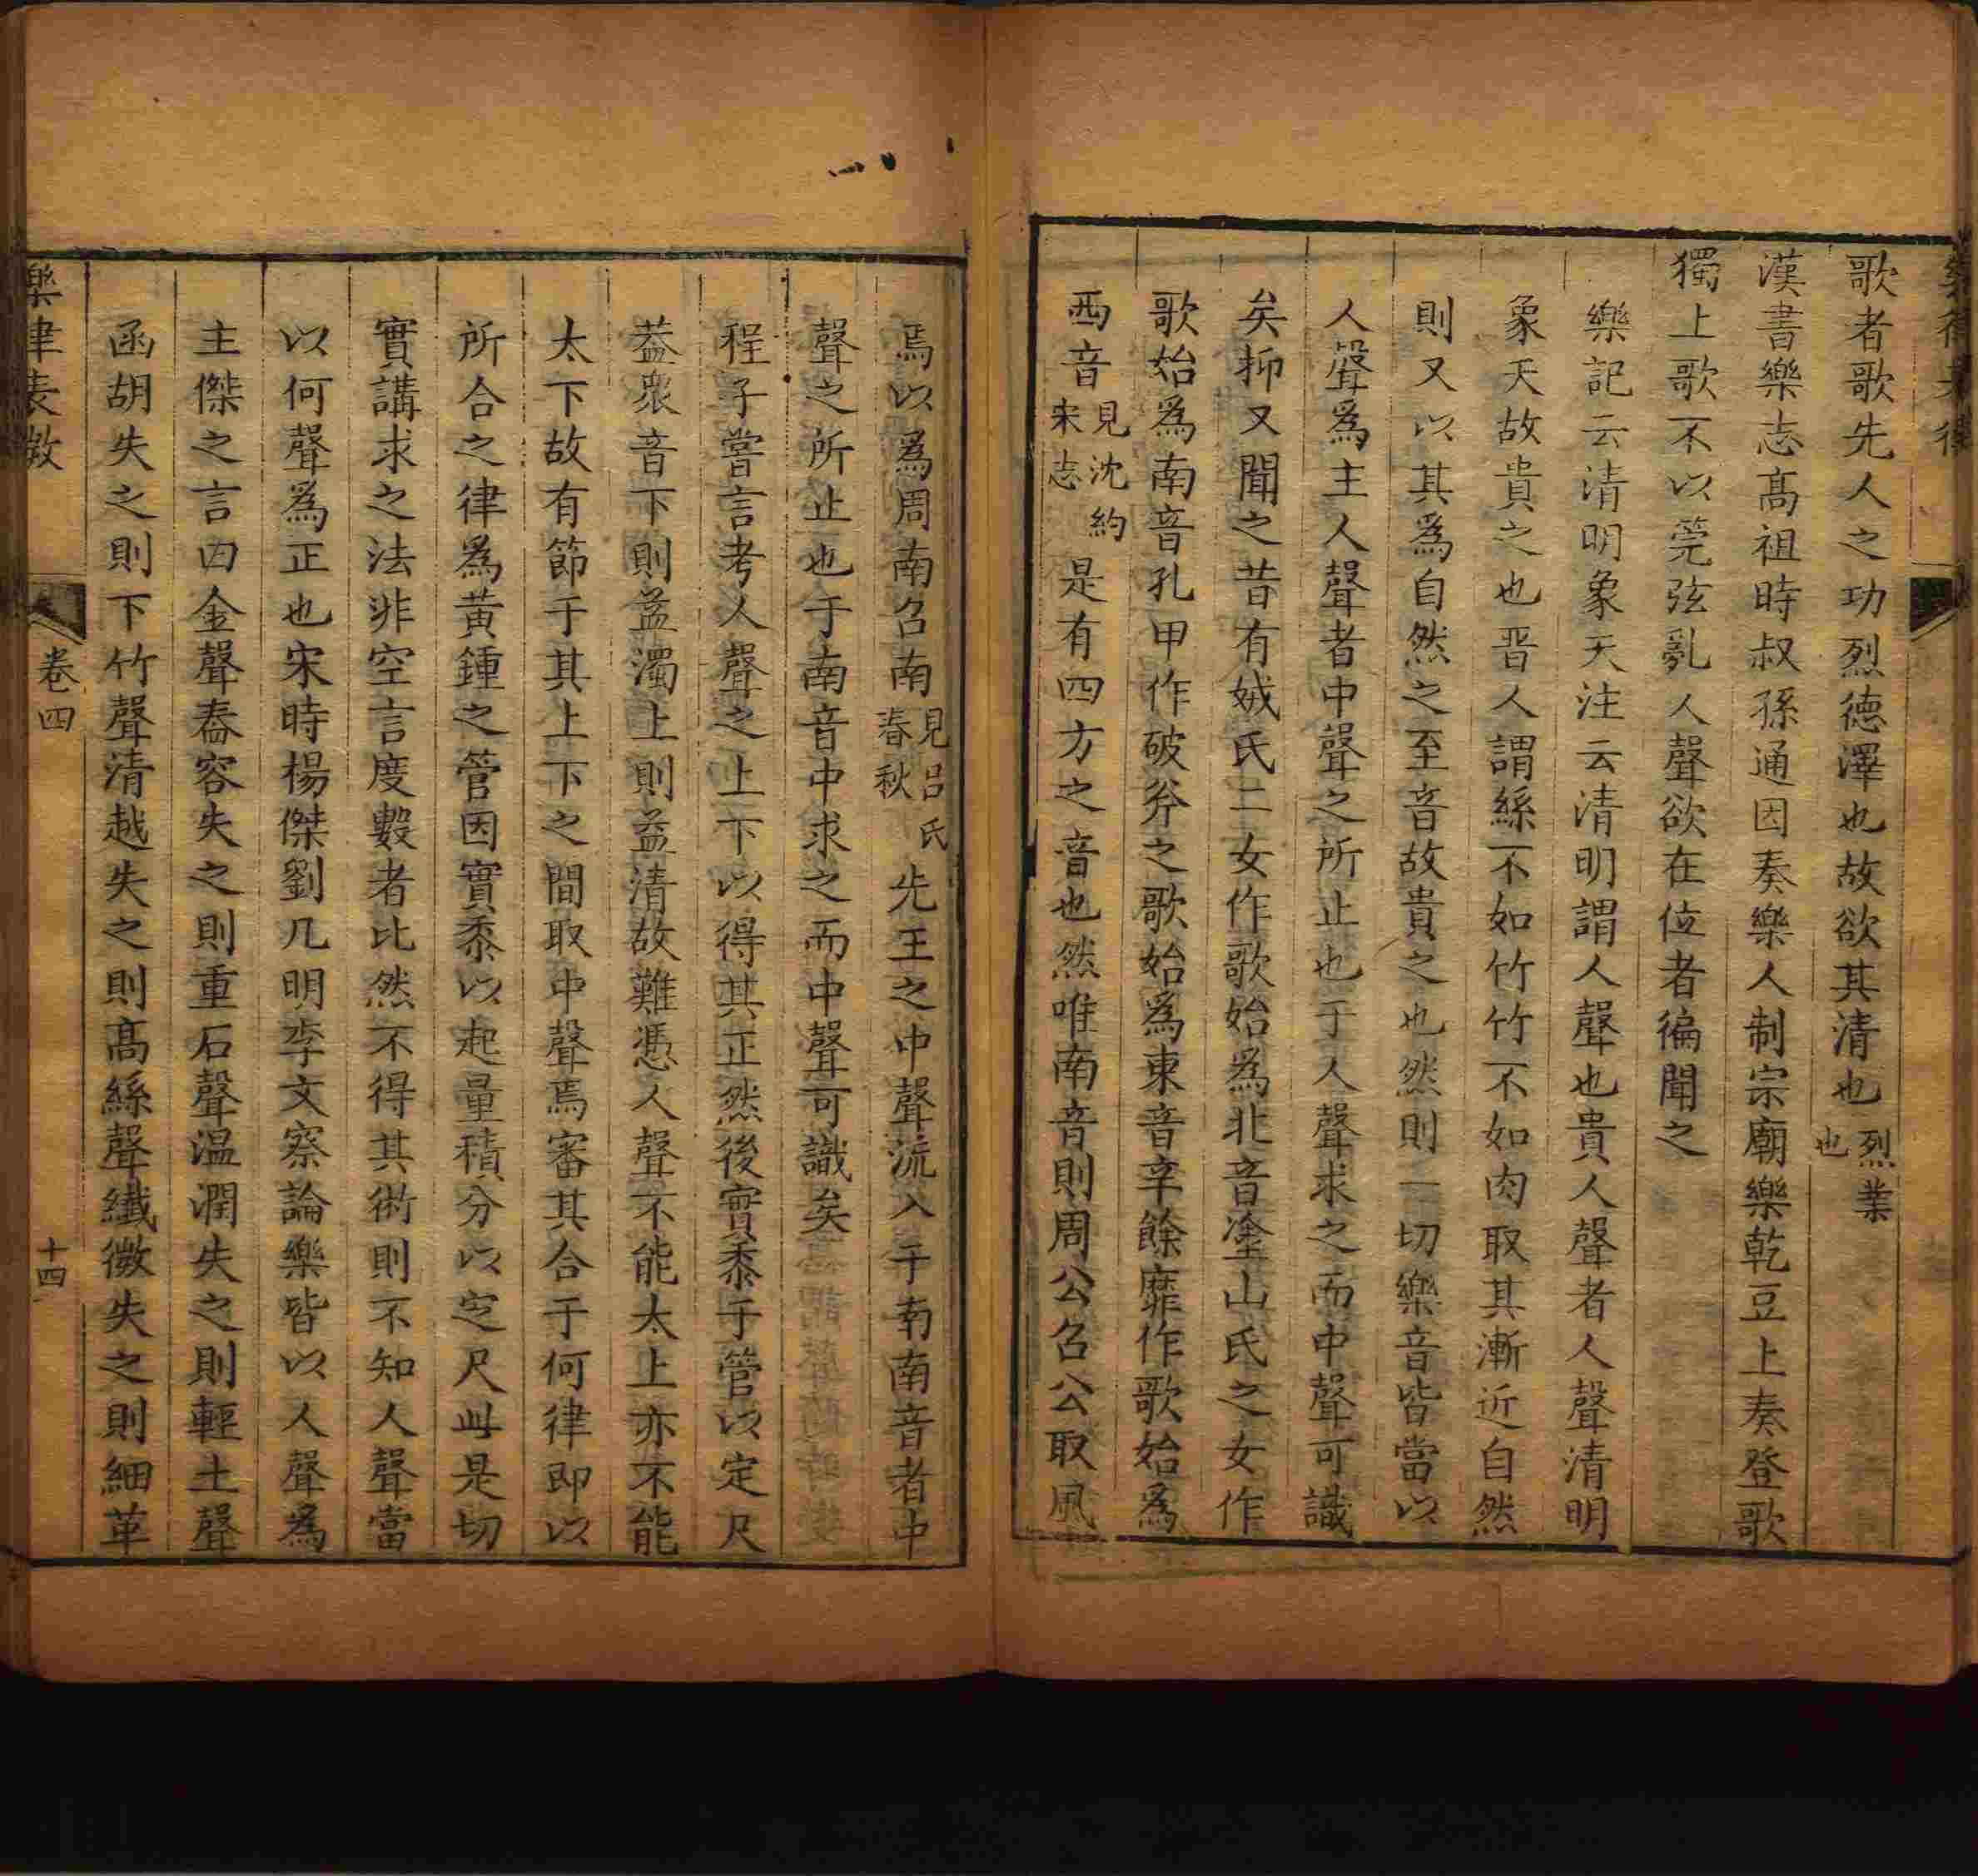 歌者歌先人之功烈德澤也故欲其清也烈業也
漢書樂志高祖時叔孫通因奏樂人制宗廟樂乾豆上奏登歌
獨上歌不以筦弦亂人聲欲在位者徧聞之
樂記云清明象天注云清明謂人聲也貴人聲者人聲清明
象天故貴之也晋人謂絲不如竹竹不如肉取其漸近自然
則又以其爲自然之至音故貴之也然則一切樂音皆當以
人聲爲主人聲者中聲之所止也于人聲求之而中聲可識
矣抑又聞之昔有娀氏二女作歌始爲北音塗山氏之女作
歌始爲南音孔甲作破斧之歌始爲東音辛餘靡作歌始爲
西音見沈約宋志是有四方之音也然唯南音則周公召公取風
焉以爲周南召南見吕氏春秋先王之中聲流入于南南音者中
聲之所止也于南音中求之而中聲可識矣
程子嘗言考人聲之上下以得其正然後實黍于管以定尺
葢衆音下則益濁上則益清故難憑人聲不能太上亦不能
太下故有節于其上下之間取中聲焉審其合于何律即以
所合之律爲黃鍾之管因實黍以起量積分以定尺此是切
實講求之法非空言度數者比然不得其術則不知人聲當
以何聲爲正也宋時楊傑劉几明李文察論樂皆以人聲爲
主傑之言曰金聲舂容失之則重石聲温潤失之則輕土聲
函胡失之則下竹聲清越失之則高絲聲纖微失之則細革
樂律表微
卷四
十四